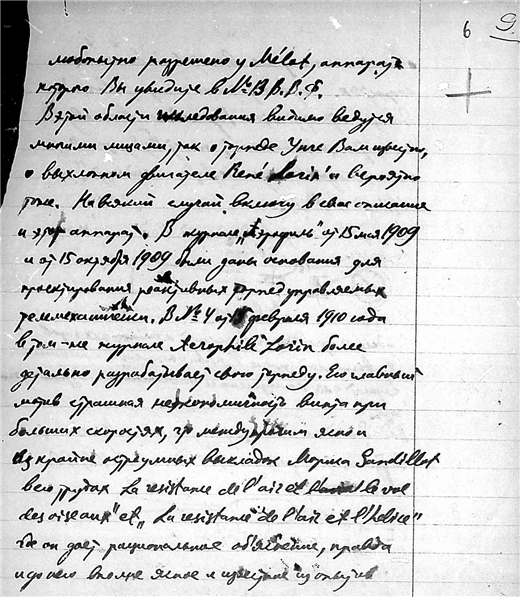 6 9.
любопытно разрешено у Mélot, аппарат
которого Вы увидите в № 13 В.В.Ф.
В этой области исследования видимо ведутся
многими лицами, так о торпеде Унге Вам известно,
о выхлопном двигателе René Lorin'a вероятно
тоже. На всякий случай включу в свое описание
и этот аппарат. В журнале „Аэрофиль" от 15 мая 1909
и от 15 октября 1909 были даны основания для
проектирования реактивных торпед управляемых
телемеханически. В № 4 от 15 февраля 1910 года
в том-же журнале Aerophile Lorin более
детально разрабатывает свою торпеду. Его главный
мотив страшная неэкономичность винта при
больших скоростях, что между прочим ясно и
из крайне остроумных выкладок Мориса Gandillot
в его трудах La resistance de l'air et le vol
des oiseaux" et „La resistance de l'air et l'helice"
где он дает рациональное об'яснение, правда
и до него вполне ясное и известное из опытов